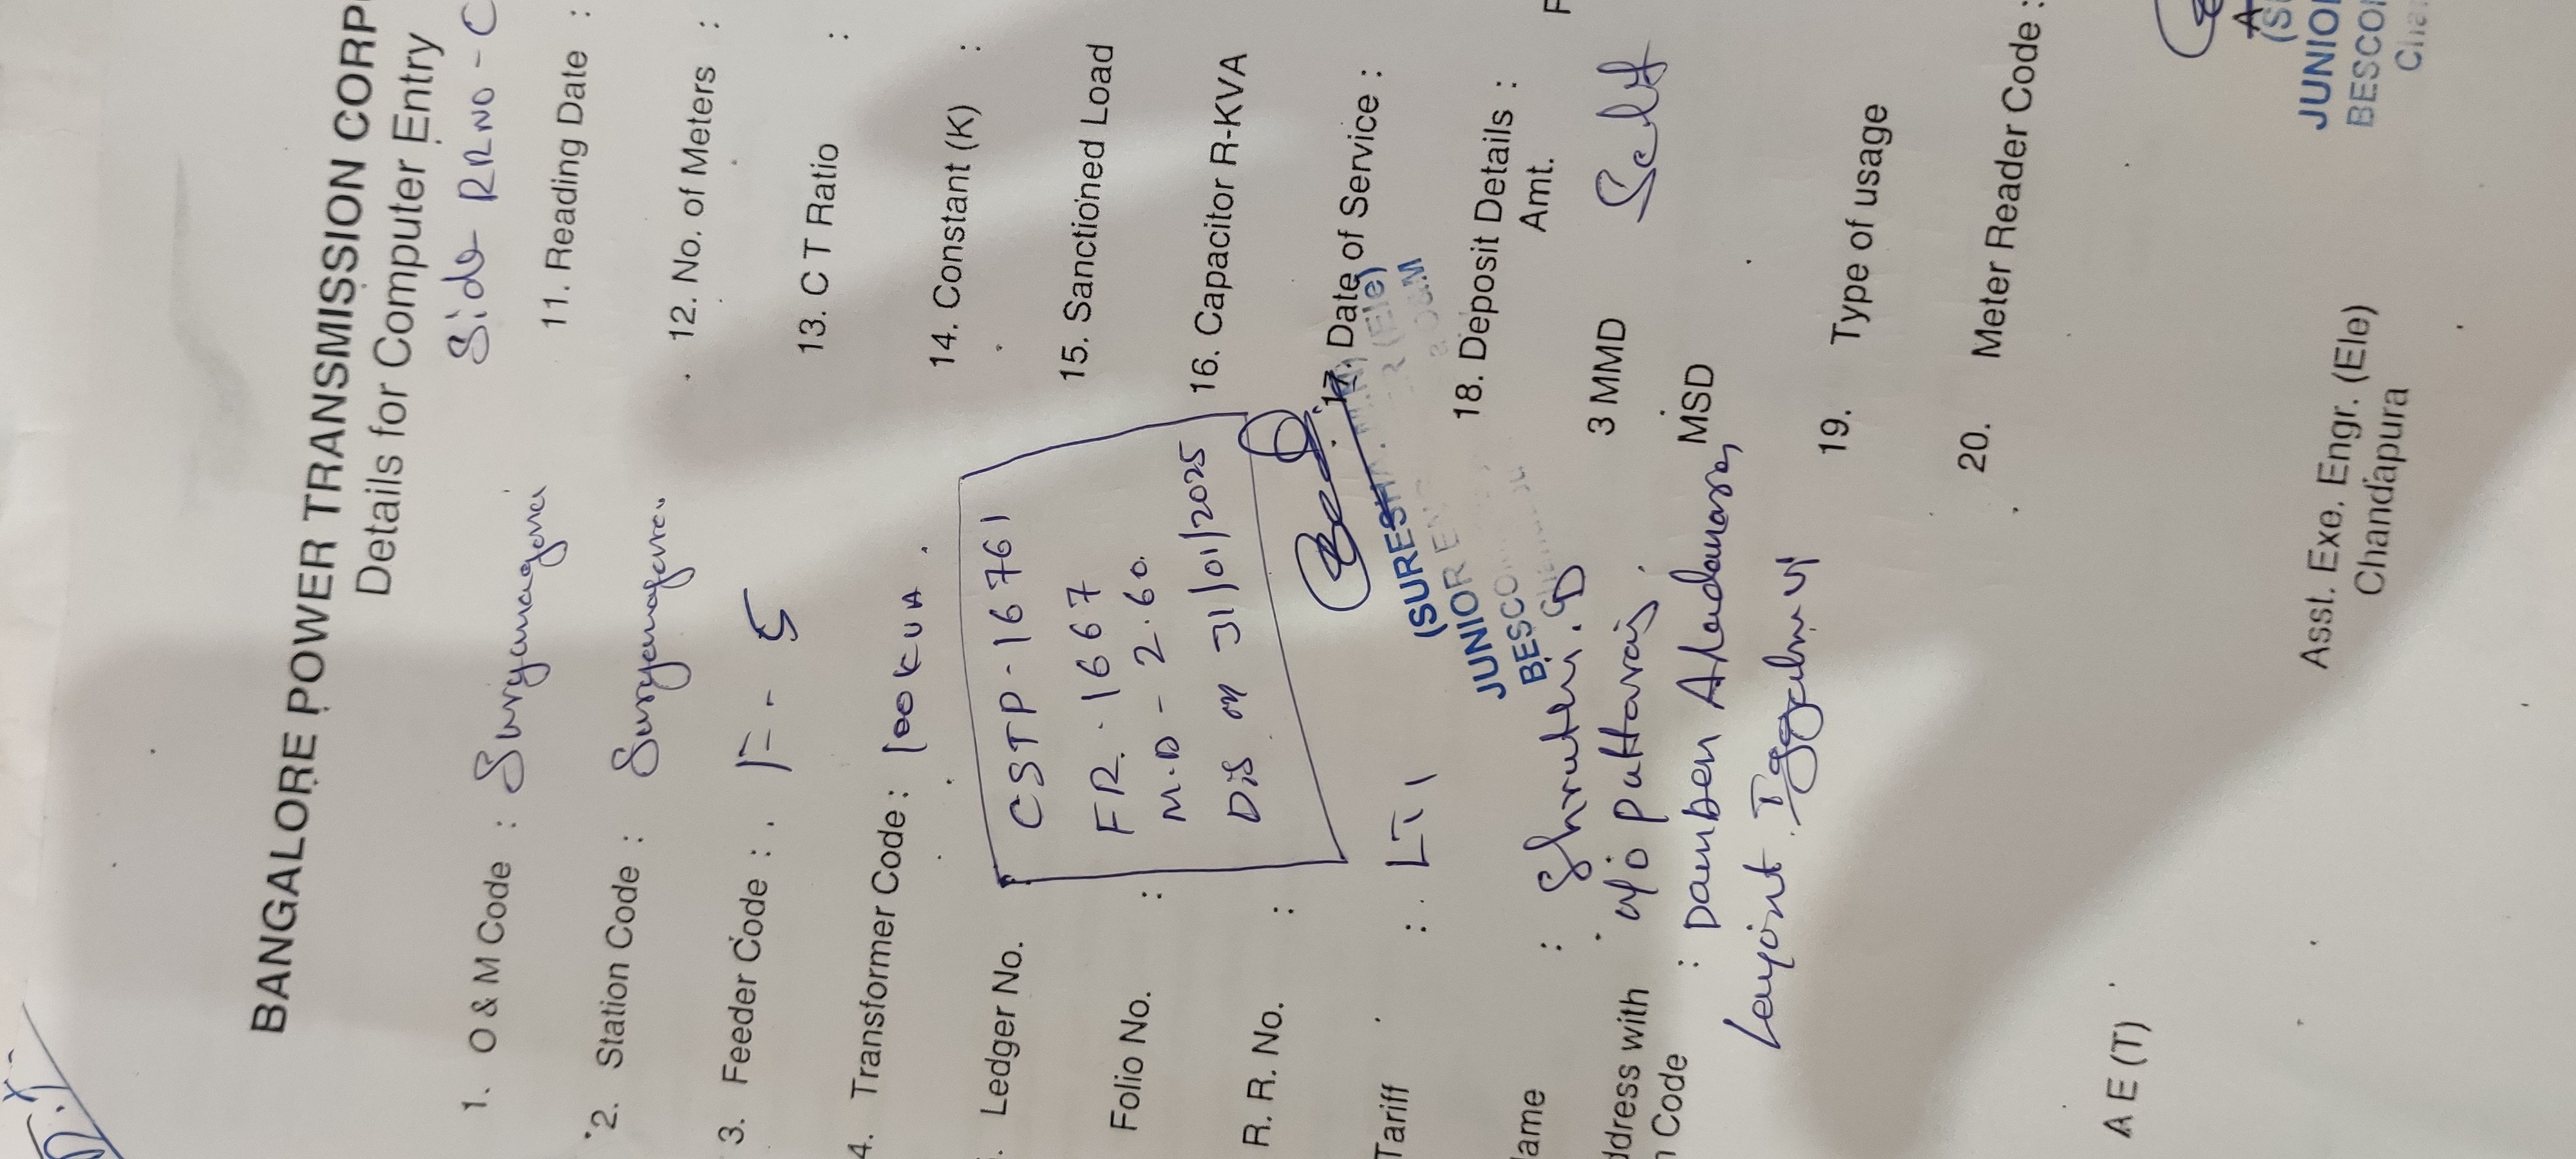 BANGALORE POWER TRANSMISSION CORP
Details for Computer Entry
Side RRNO - C
1. O & M Code : Suryanagara
2. Station Code : Suryanagara
3. Feeder Code : F - 5
4. Transformer Code : 100 KVA
Ledger No.
CSTP - 167761
FR. 1667
M.D - 2.60
Dis on 31/01/2025
Folio No. :
R. R. No. :
Tariff : LT1
(SURESH
JUNIOR EN
BESCO
ame : Shruthi . D
ddress with W/o puttaraj
Code : Daruben
Layout
11. Reading Date :
12. No. of Meters :
13. C T Ratio :
14. Constant (K) :
15. Sanctioned Load
16. Capacitor R-KVA
17. Date of Service :
18. Deposit Details :
Amt.
3 MMD Self
MSD
19. Type of usage
20. Meter Reader Code :
A E (T)
Asst. Exe. Engr. (Ele)
Chandapura
JUNIO
BESCO
Cha